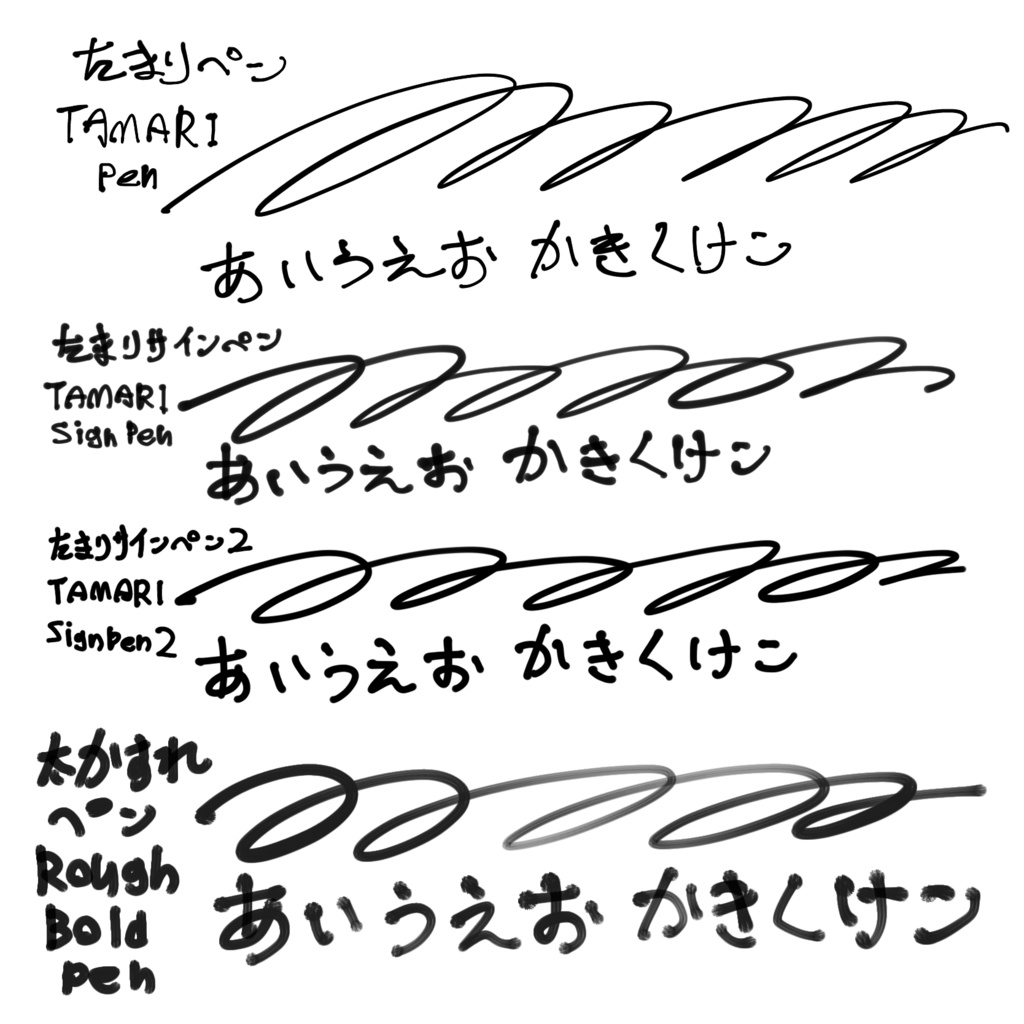 たまりペン
TAMARI
Pen
あいうえお かきくけこ
たまりサインペン
TAMARI
Sign Pen
あいうえお かきくけこ
たまりサインペン2
TAMARI
SignPen2
あいうえお かきくけこ
太かすれ
ペン
Rough
Bold
pen
あいうえお かきくけこ